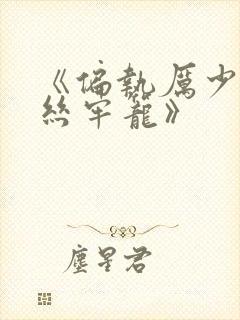 《偏執厲少
絲牢籠》
塵星君